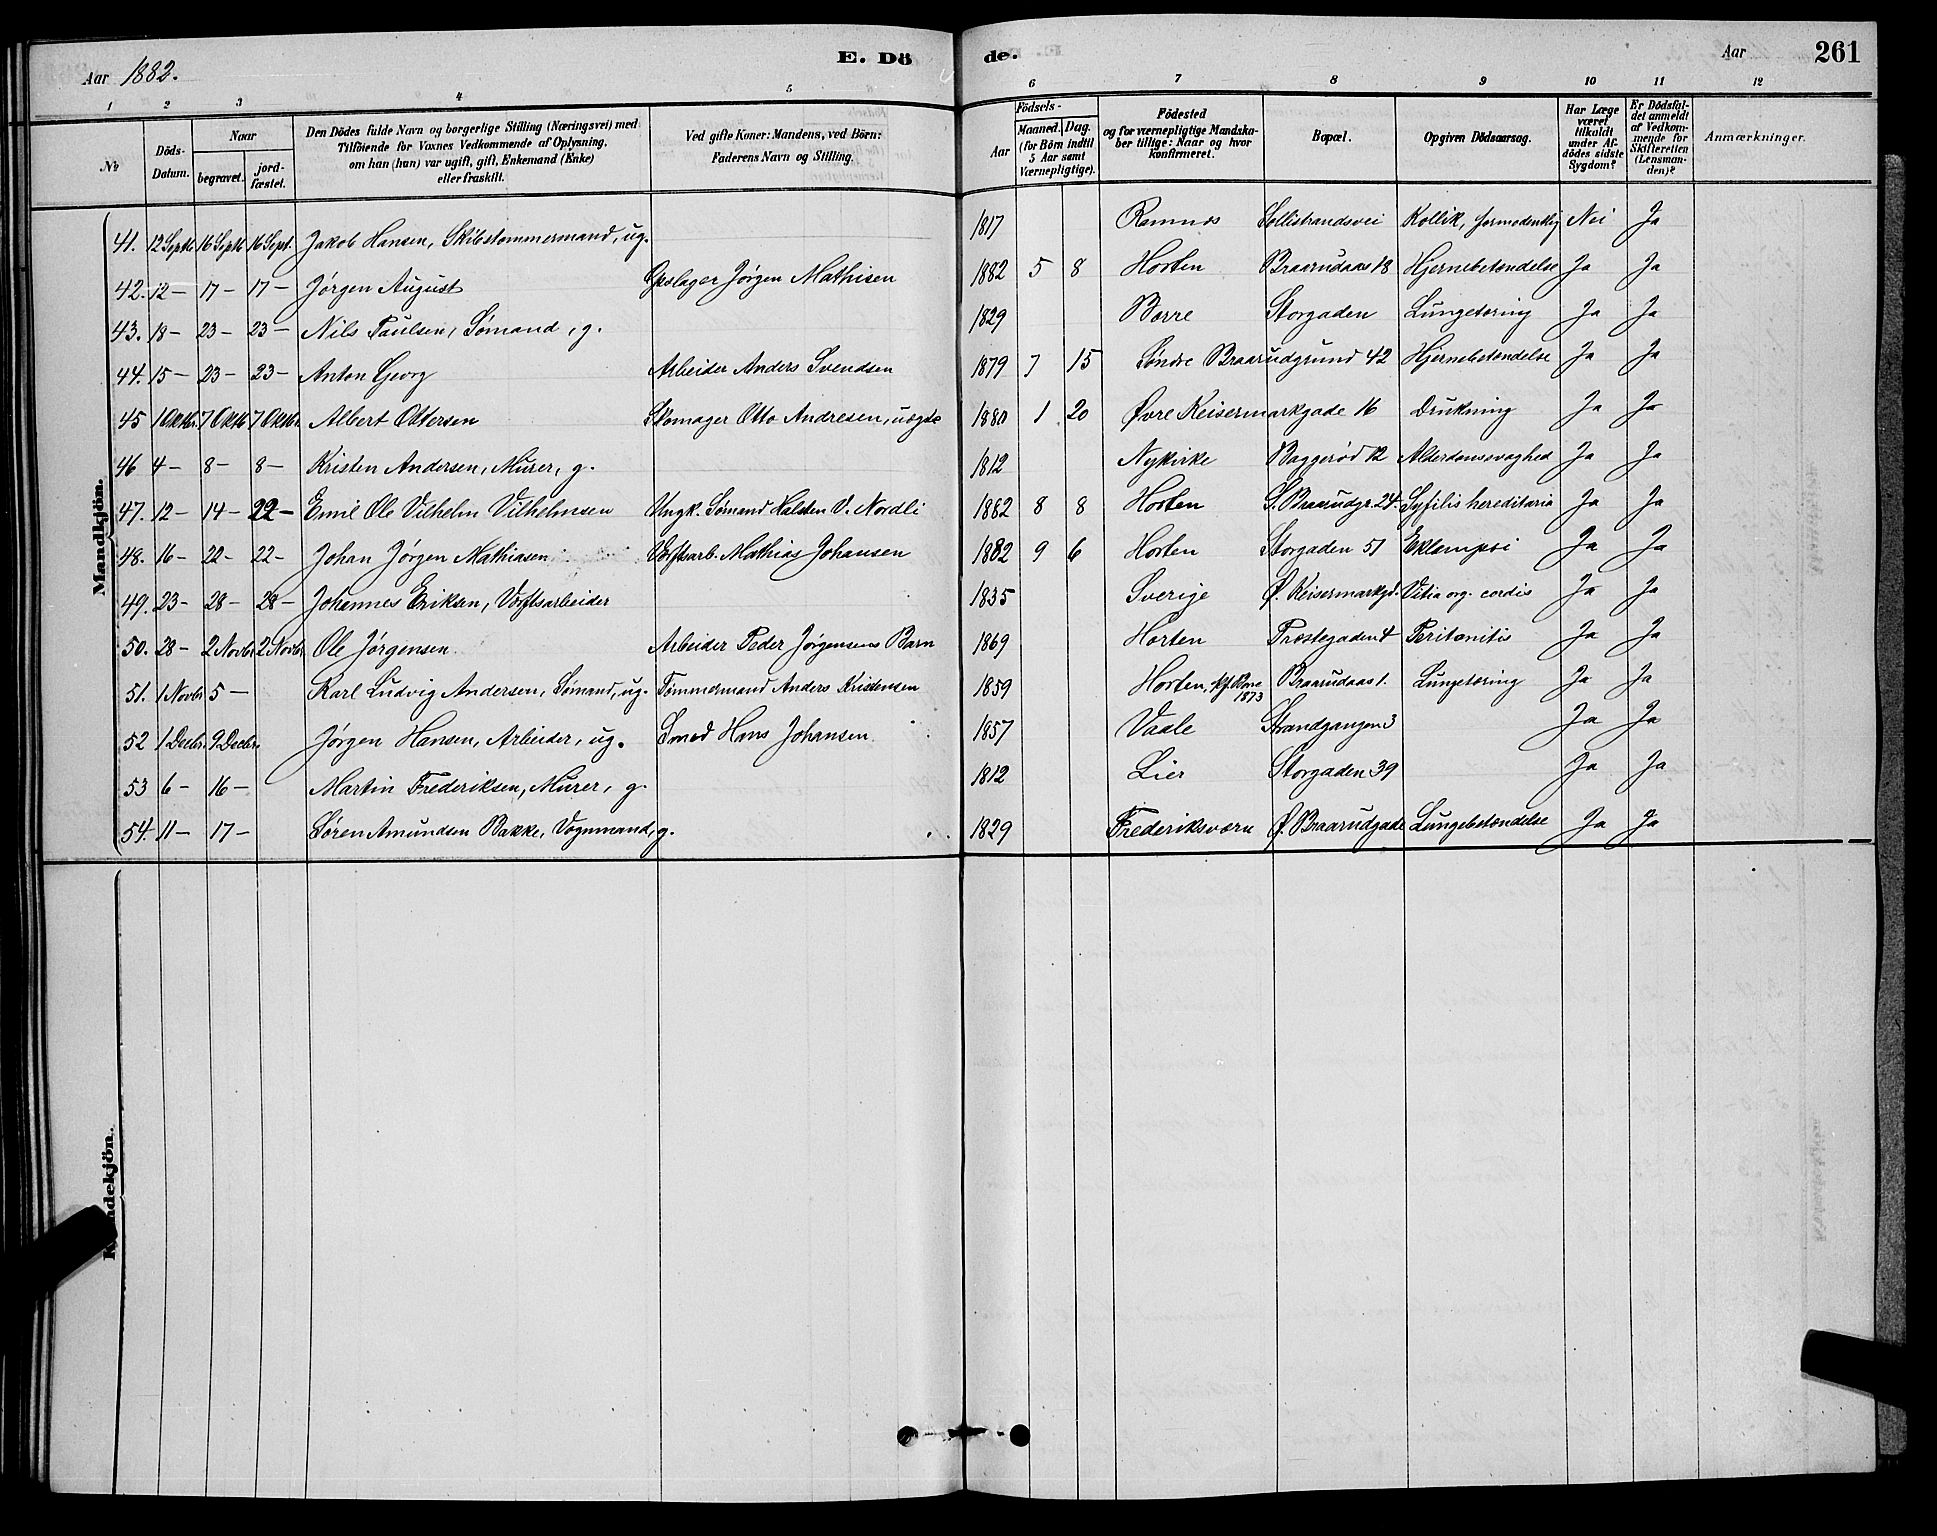 Aar 1882. E. Dö de. Aar 261
1 2 3 4 5 6 7 8 9 10 11 12
№ Döds-Datum. Naar begravet. jord-fæstet. Den Dödes fulde Navn og borgerlige Stilling (Næringsvei) med Tilföiende for Voxnes Vedkommende af Oplysning, om han (hun) var ugift, gift, Enkemand (Enke) eller fraskilt. Ved gifte Koner: Mandens, ved Börn: Faderens Navn og Stilling. Födsels- Aar Maaned. Dag. (for Börn indtil 5 Aar samt Værnepligtige). Födested og for værnepligtige Mandska-ber tillige: Naar og hvor konfirmeret. Bopæl. Opgiven Dödsaarsag. Har Læge været tilkaldt under Af-dödes sidste Sygdom? Er Dödsfal-det anmeldt af Vedkom-mende for Skifteretten (Lensman-den)? Anmærkninger.
Mandkjön.
41. 12 Septb. 16 Septb 16 Sept. Jakob Hansen, Skibstømmermand, ug. 1817 Ramnes Sollistrandsvei Kollik, formodentlig Nei Ja
42. 12 — 17 — 17 — Jørgen August Jørgen Mathisen 1882 5 8 Horten Braarudaas 18 Hjernebetændelse Ja Ja
43. 18 — 23 — 23 — Nils Paulsen, Sømand, g. 1829 Borre Storgaden Lungetæring Ja Ja
44. 15 — 23 — 23 — Anton Georg Arbeider Anders Svendsen 1879 7 15 Søndre Braarudgrund 42 Hjernebetændelse Ja Ja
45 1 Oktbr. 7 Oktb 7 Oktbr. Albert Ottersen Skomager Otto Andresen, uægte 1880 1 20 Øvre Keisermarkgade 16 Drukning Ja Ja
46 4 — 8 — 8 — Kristen Andersen, Murer, g. 1812 Nykirke Baggerød 12 Alderdomssvaghed Ja Ja
47. 12 — 14 — 22 — Emil Ole Vilhelm Vilhelmsen Ungk. Sømand Halsten V. Nordli 1882 8 8 Horten S. Braarudgr. 24. Syfilis hereditaria Ja Ja
48. 16 — 22 — 22 — Johan Jørgen Mathiasen Værftsarb. Mathias Johansen 1882 9 6 Horten Storgaden 51 Eklampsi Ja Ja
49. 23 — 28 — 28 — Johannes Eriksen, Værftsarbeider 1835 Sverige Ø. Keisermarkgd. Vitia org. cordis Ja Ja
50. 28 — 2 Novbr. 2 Novbr. Ole Jørgensen Arbeider Peder Jørgensens Barn 1869 Horten Præstegaden 4 Peritonitis Ja Ja
51. 1 Novbr 5 — Karl Ludvig Andersen, Sømand, ug. Tømmermand Anders Kristensen 1859 Horten, kf. Borre 1873 Braarudaas 1. Lungetæring Ja Ja
52 1 Decbr. 9 Decbr. Jørgen Hansen, Arbeider, ug. Smed Hans Johansen 1857 Vaale Strandgangen 3 Ja Ja
53 6 — 16 — Martin Frederiksen, Murer, g. 1812 Lier Storgaden 39 Ja Ja
54. 11 — 17 — Søren Amundsen Bakke, Vognmand, g. 1829 Frederiksværn Ø. Braarudgade Lungebetændelse Ja Ja